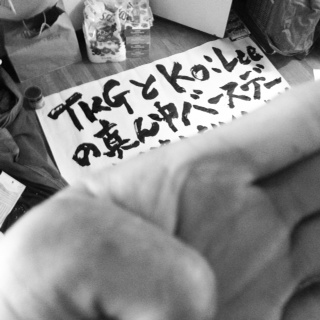 TKGとKo:Lee
の真ん中バースデー